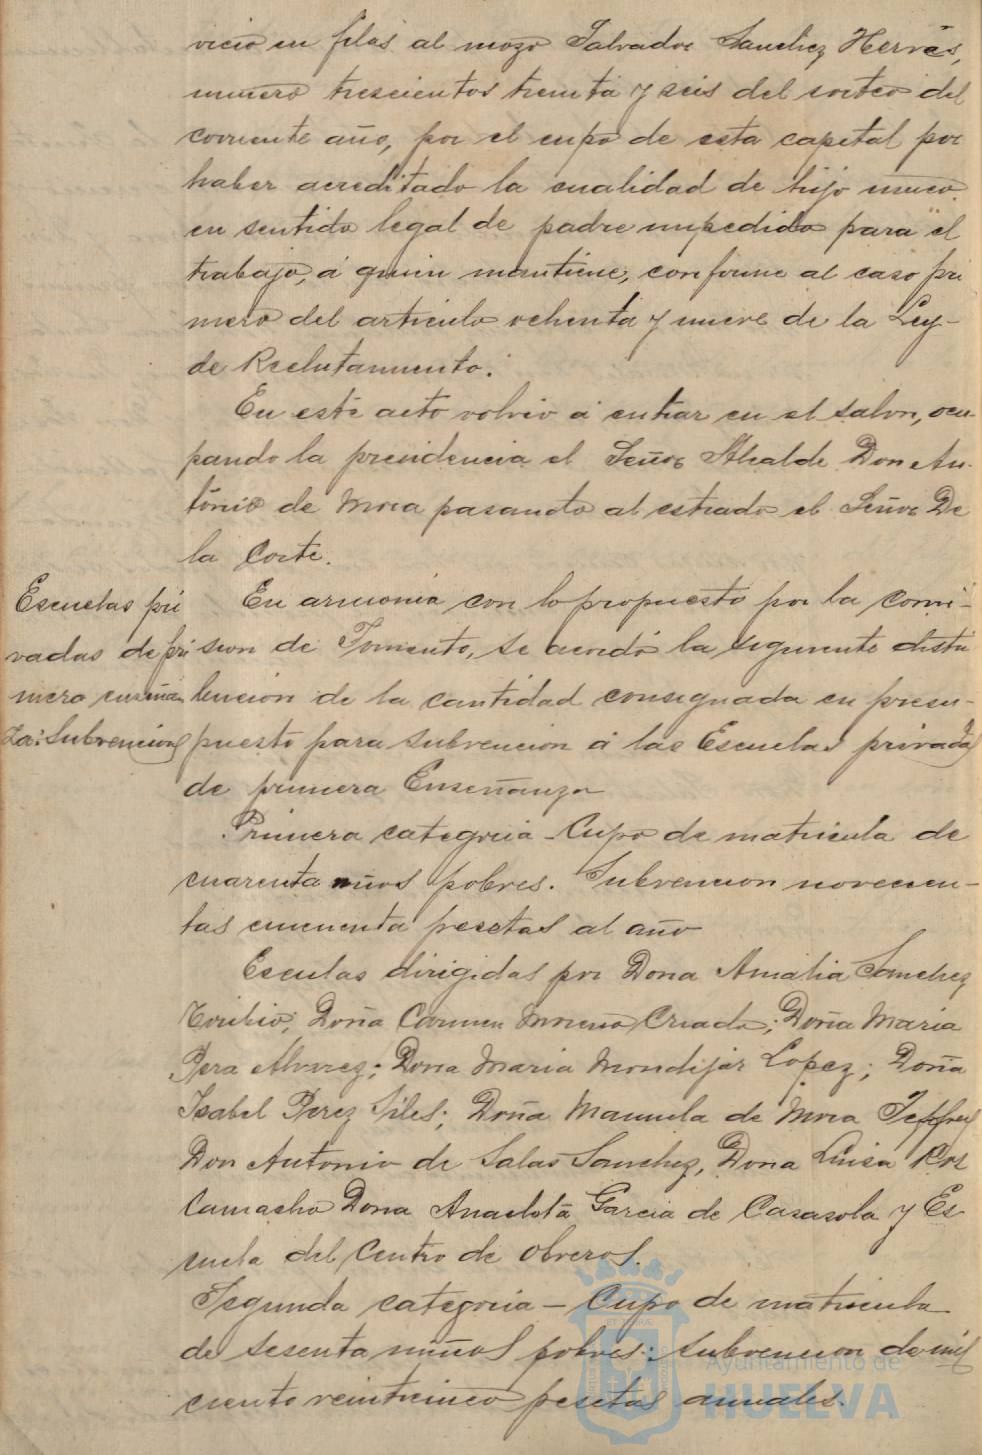 vicio en filas al mozo Salvador Sanchez Hervás,
número trescientos treinta y seis del sorteo del
corriente año, por el cupo de esta capital por
haber acreditado la cualidad de hijo unico
en sentido legal de padre impedido para el
trabajo, á quien mantiene, conforme al caso pri
mero del articulo ochenta y nueve de la Ley
de Reclutamiento.
En este acto volvió á entrar en el salon, ocu-
pando la presidencia el Señor Alcalde Don An-
tonio de Mora pasando al estrado el Señor De
la Corte.
Escuelas pri
vadas de pri
mera enseñan
za: Subvencion
En armonia con lo propuesto por la comi-
sion de Fomento, se acordó la siguiente distri
bucion de la cantidad consignada en presu-
puesto para subvencion á las Escuelas privadas
de primera Enseñanza
Primera categoria - Cupo de matricula de
cuarenta niños pobres. Subvencion novecien-
tas cincuenta pesetas al año
Escuelas dirigidas por Doña Amalia Sanchez
Toribio; Doña Carmen Moreno Criado; Doña Maria
Pera Alvarez; Dona Maria Mondijar Lopez; Doña
Isabel Perez Siles; Doña Manuela de Mora
Don Antonio de Salas Sanchez, Dona Luisa
Camacho Dona Anacleta Garcia de Casasola y Es
cuela del Centro de obreros.
Segunda categoria - Cupo de matricula
de sesenta niños pobres: subvencion de mil
ciento veinticinco pesetas anuales.
Ayuntamiento de
HUELVA